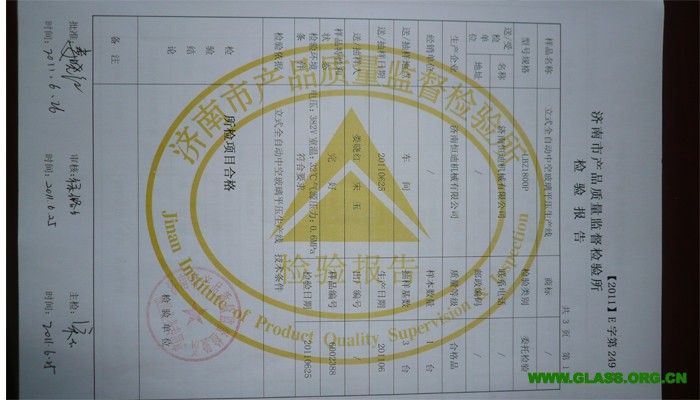 济南市产品质量监督检验所
检 验 报 告
【2011】E 字第 249
共 3 页 第 1
样品名称 立式全自动中空玻璃平压生产线 商标 /
型号规格 LBZ1800P 检验类别 委托检验
送/受检单位 名称 济南恒迪机械有限公司 联系电话
地址 / 邮政编码 /
生产企业 济南恒迪机械有限公司 质量等级 合格品
经销单位 / 样本数量 1 台
送/抽样地点 车 间 抽样基数 3 台
送/抽样日期 20110625 生产日期 201106
送/抽样人 娄晓红 宋 玉 出厂编号 /
样品特性和状态 完 好 样品编号 6002388
检验环境条件 电压:382V 室温:32℃ 气源压力:0.6MPa 符合要求 检验日期 20110625
检验依据 立式全自动中空玻璃平压生产线 技术条件
检验结论 所检项目合格
检 验 单 位
备 注
批准: 审核: 主检:
时间: 2011.6.26 时间: 2011.6.25 时间: 2011.6.25
济南市产品质量监督检验所
检验报告
Jinan Institute of Product Quality Supervision Inspection
WWW.GLASS.ORG.CN